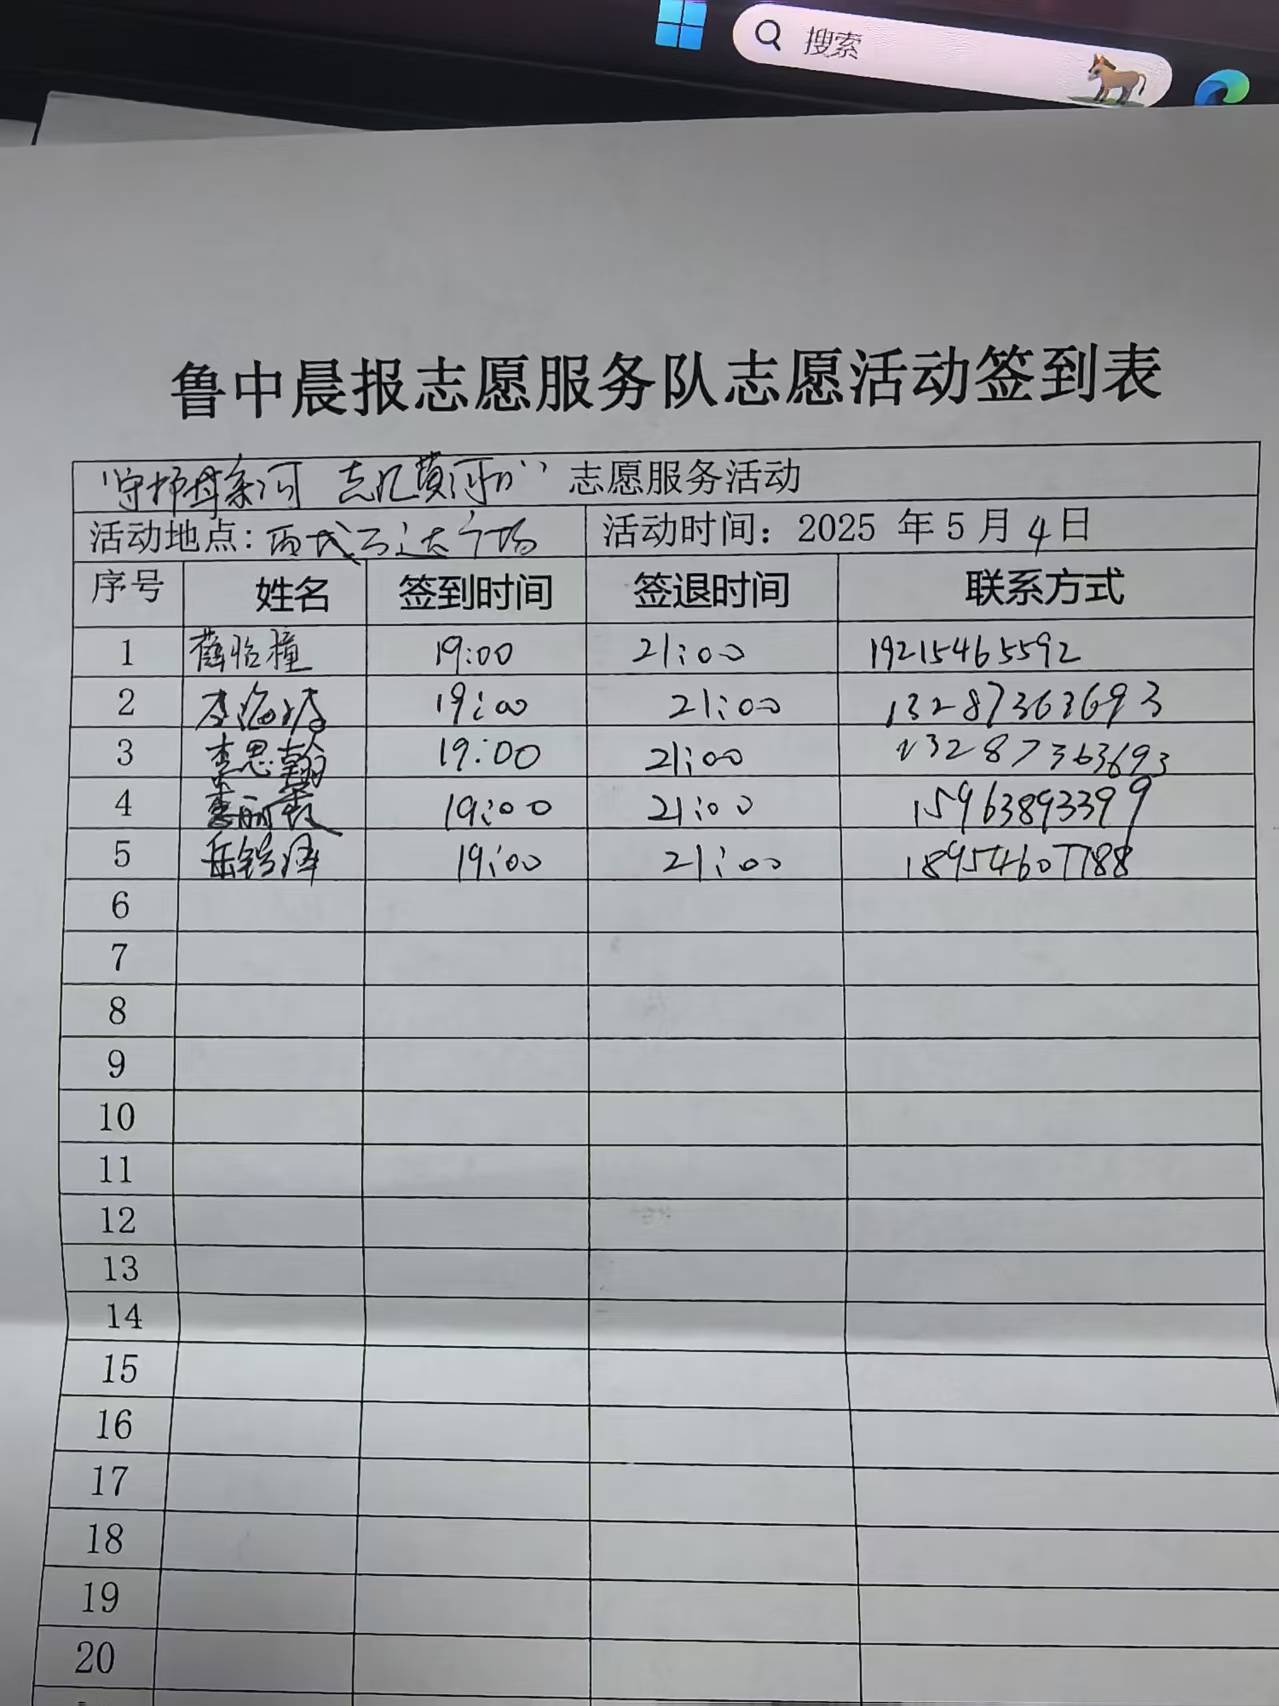 搜索
鲁中晨报志愿服务队志愿活动签到表
“守护母亲河 志汇黄河口” 志愿服务活动
活动地点: 西城万达广场 活动时间: 2025 年 5 月 4 日
序号 姓名 签到时间 签退时间 联系方式
1 19:00 21:00 19215465592
2 19:00 21:00 13287363693
3 李思翰 19:00 21:00 13287363693
4 19:00 21:00 15963893399
5 19:00 21:00 18954607788
6
7
8
9
10
11
12
13
14
15
16
17
18
19
20